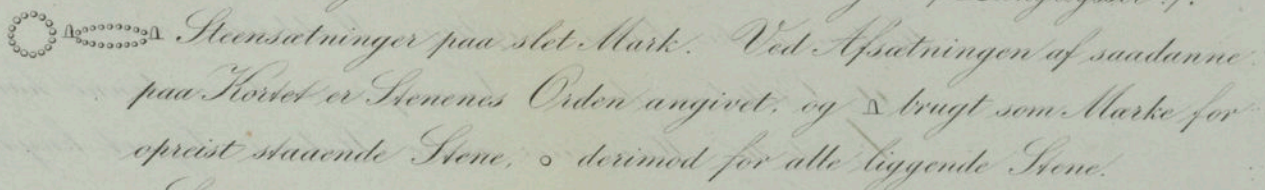 Steensætninger paa slet Mark. Ved Afsætningen af saadanne
paa Kortet er Stenenes Orden angivet, og brugt som Mærke for
opreist staaende Stene, o derimod for alle liggende Stene.